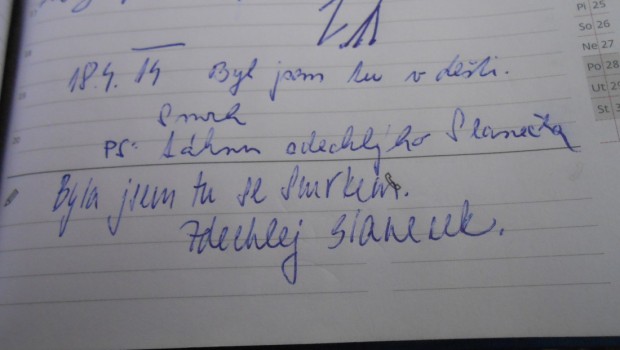 18.4. 14 Byl jsem tu v dešti.
Smrk
PS: táhnu zdechlýho Slanečka
Byla jsem tu se Smrkem.
Zdechlej slaneček.
Pi 25
So 26
Ne 27
Po 28
Ut
St